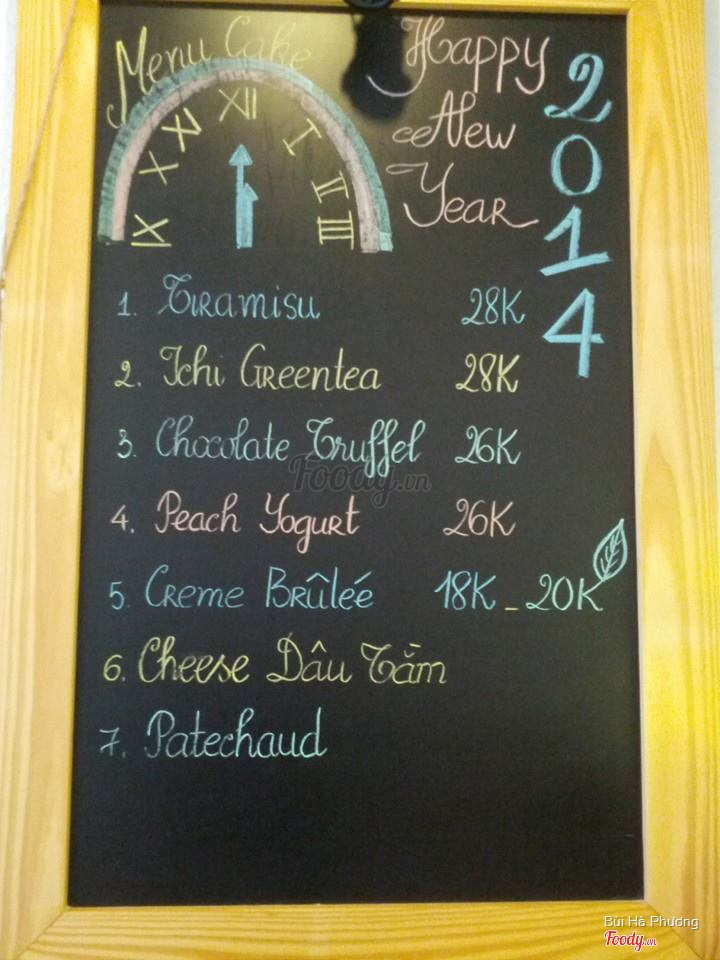 Menu Cake
Happy
New
Year
2014
IX
X
XI
XII
I
II
III
1. Tiramisu 28K
2. Ichi Greentea 28K
3. Chocolate Truffel 26K
4. Peach Yogurt 26K
5. Creme Brûleé 18K - 20K
6. Cheese Dâu Tằm
7. Patechaud
Foody.vn
Bùi Hà Phương
Foody.vn